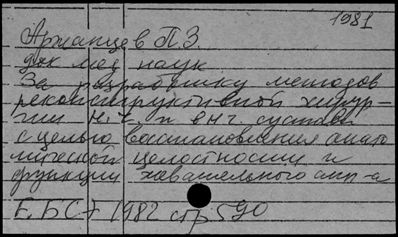 1981
Аржанцев П.З.
док мед наук
За разработку методов
реконструктивной хирур-
гии н.ч. и внч. сустава
с целью восстановления анато
мической целостности и
функции жевательного апп-а
Е.БСЭ 1982 стр 590